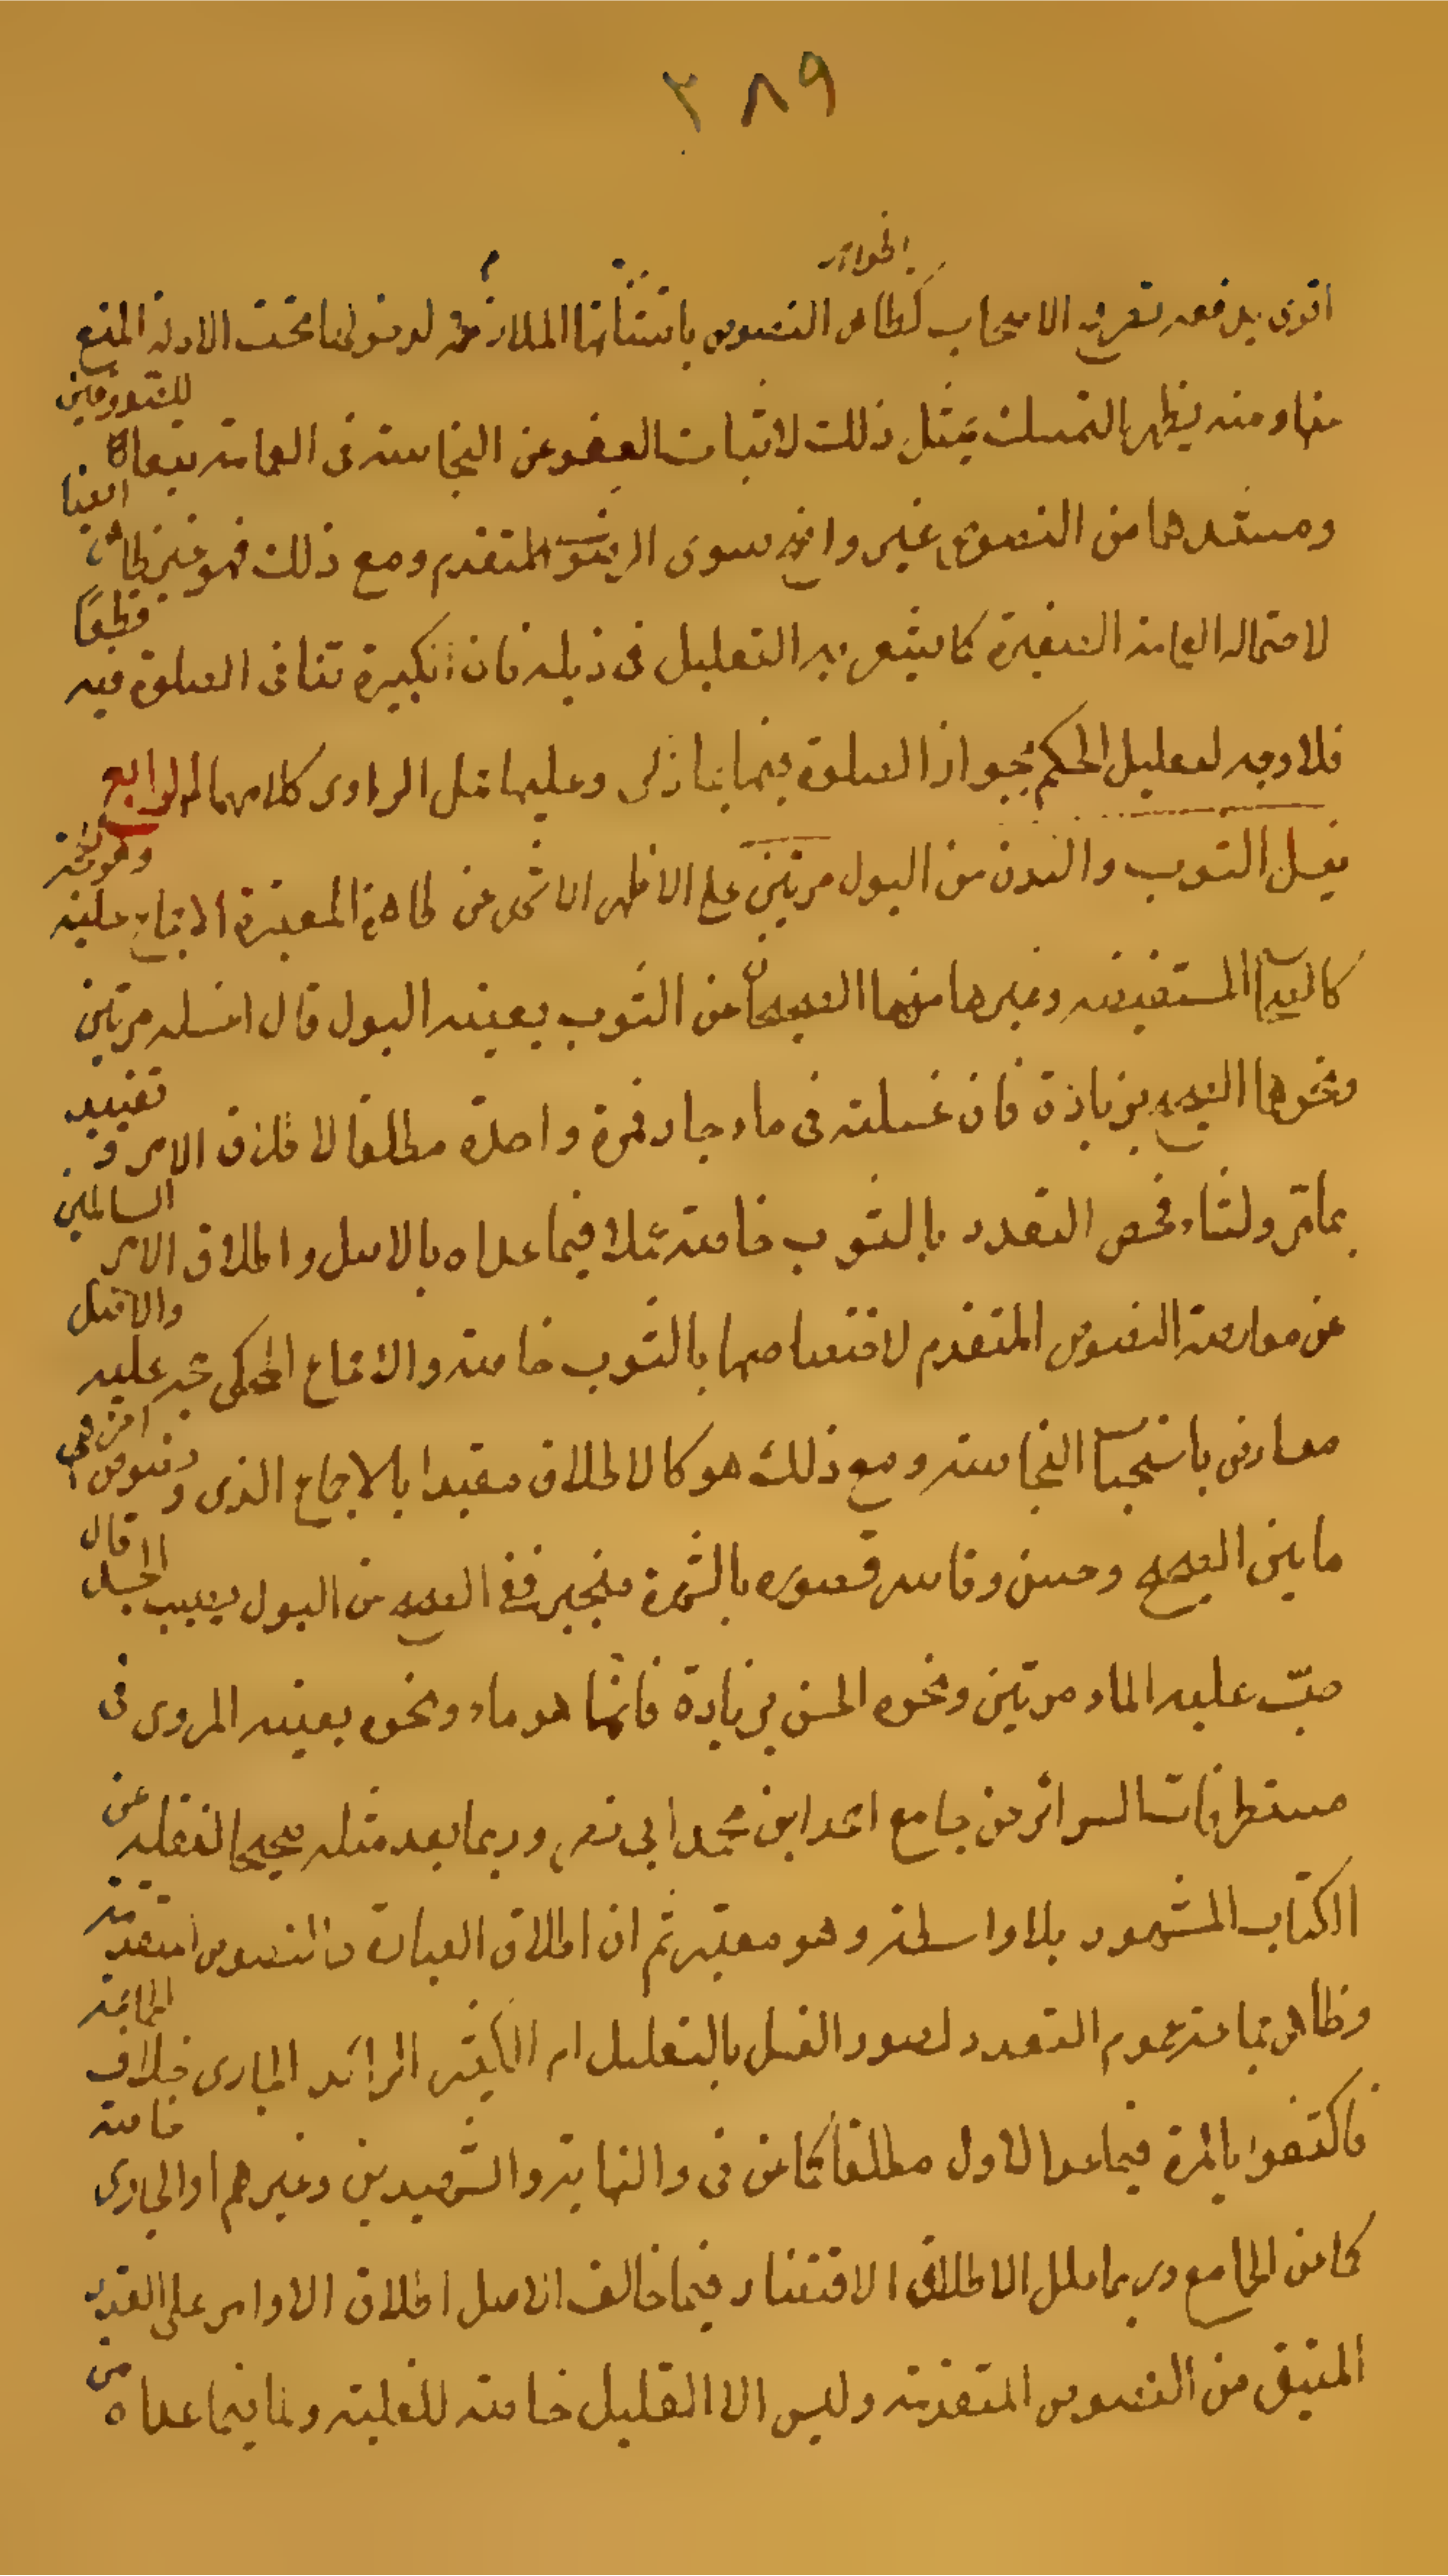 ٣٨٩
الجواز
اقوى يدفعه تصريح الاصحاب كظاهر النصوص باستثنائها الملازمة لدخولها تحت الادلة المنع
منها ومنه يظهر التمسك بمثل ذلك لاثبات العفو عن النجاسة فى العمامة تبعا للصدوقين
ومستندهما من النصوص غير واضح سوى الرضوى المتقدم ومع ذلك فهو غير ظاهر ايضا
لاحتماله العمامة الصغيرة كما يشعر به التعليل فى ذيله فان الكبيرة تنافى الصلوة فيه قطعًا
فلا وجه لتعليل الحكم بجواز الصلوة فيهما بما ذكر وعليها حمل الراوى كلامهما الرابع
يغسل الثوب والبدن من البول مرتين على الاظهر الاشهر عن ظاهر المعتبرة الاجماع عليه وهو حجة
كالصحاح المستفيضة وغيرها منها الصحيحان عن الثوب يصيبه البول قال اغسله مرتين
ونحوها الصحيح بزيادة فان غسلته فى ماء جار فمرة واحدة مطلقا لاطلاق الامر و تقييده
بما مر ولنا فخص التعدد بالثوب خاصة عملا فيما عداه بالاصل واطلاق الامر السالمين
عن معارضة النصوص المتقدم لاختصاصها بالثوب خاصة والاجماع المحكى حجة عليه والاصل
معارض باستصحاب النجاسة ومع ذلك هو كالاطلاق مقيد بالاجماع الذى ونصوص اخر هى
ما بين الصحيح وحسن وقاصر قصوره بالشهرة منجبر ففى الصحيح عن البول يصيب الجسد قال
صبّ عليه الماء مرتين ونحوه الحسن بزيادة فانما هو ماء ونحوه بعينه المروى فى
مستطرفات السرائر من جامع احمد ابن محمد ابى نصر وربما يعد مثله صحيحا لنقله عن
الكتاب المشهور بلا واسطة وهو معتبر ثم ان اطلاق العبارة كالنصوص المتقدمة
وظاهر جماعة عموم التعدد لصور الغسل بالقليل ام الكثير الراكد الجارى خلاف لجماعة
فاكتفوا بالمرة فيما عدا الاول مطلقا كما عن فى والنهاية والشهيدين وغيرهم او الجارى خاصة
كما عن الجامع وربما علل الاطلاق الاقتصار فيما خالف الاصل اطلاق الاوامر على القدر
المتيقن من النصوص المتقدمة وليس الا القليل خاصة للغلبة ولنا فيما عداه من